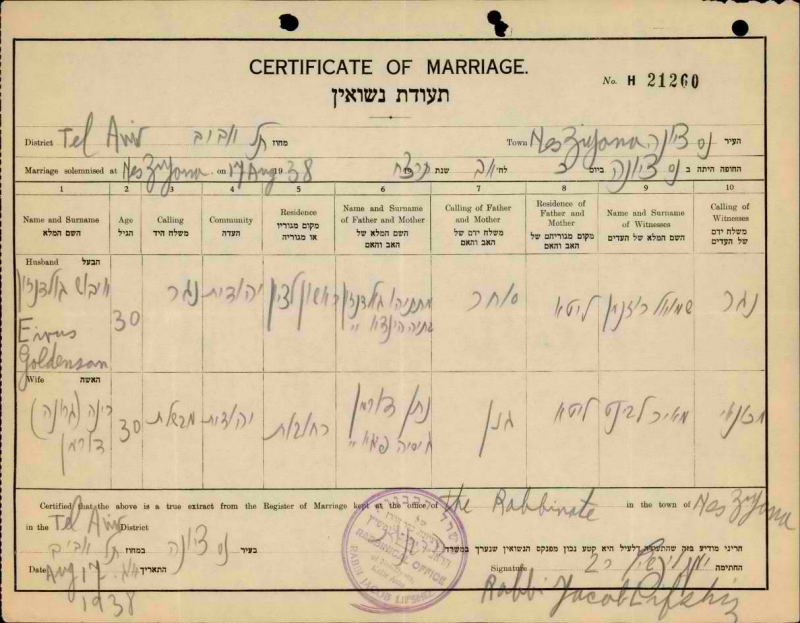 CERTIFICATE OF MARRIAGE.
No. H 21260
תעודת נשואין
District Tel Aviv תל אביב מחוז Town Nes Ziyona נס ציונה העיר
Marriage solemnised at Nes Ziyona on 17 Aug 1938 החופה היתה ב נס ציונה ביום לח' אב שנת תרצח
1 2 3 4 5 6 7 8 9 10
Name and Surname
השם המלא
Age
הגיל
Calling
משלח היד
Community
העדה
Residence
מקום מגוריו
או מגוריה
Name and Surname
of Father and Mother
השם המלא של
האב והאם
Calling of Father
and Mother
משלח ידם של
האב והאם
Residence of
Father and
Mother
מקום מגוריהם של
האב והאם
Name and Surname
of Witnesses
השם המלא של העדים
Calling of
Witnesses
משלח ידם
של העדים
Husband הבעל
גולדנזון 30 נגר יהודית ראשון לציון מתתיהו גולדנזון סוחר ליטא שמואל נגר
Goldenson
Wife האשה
רינה 30 מבשלת יהודית רחובות נתן דורמן גנן ליטא מאיר
דורמן
Certified that the above is a true extract from the Register of Marriage kept at the office of the Rabbinate in the town of Nes Ziyona
in the Tel Aviv District
הריני מודיע בזה שהתעודה דלעיל היא קטע נכון מפנקס הנשואין שנערך במשרד
בעיר נס ציונה במחוז תל אביב
Date Aug 17 התאריך
1938
Signature החתימה
Rabbi Jacob Lifshiz
RABBINICAL OFFICE
RABBI JACOB LIFSHITZ